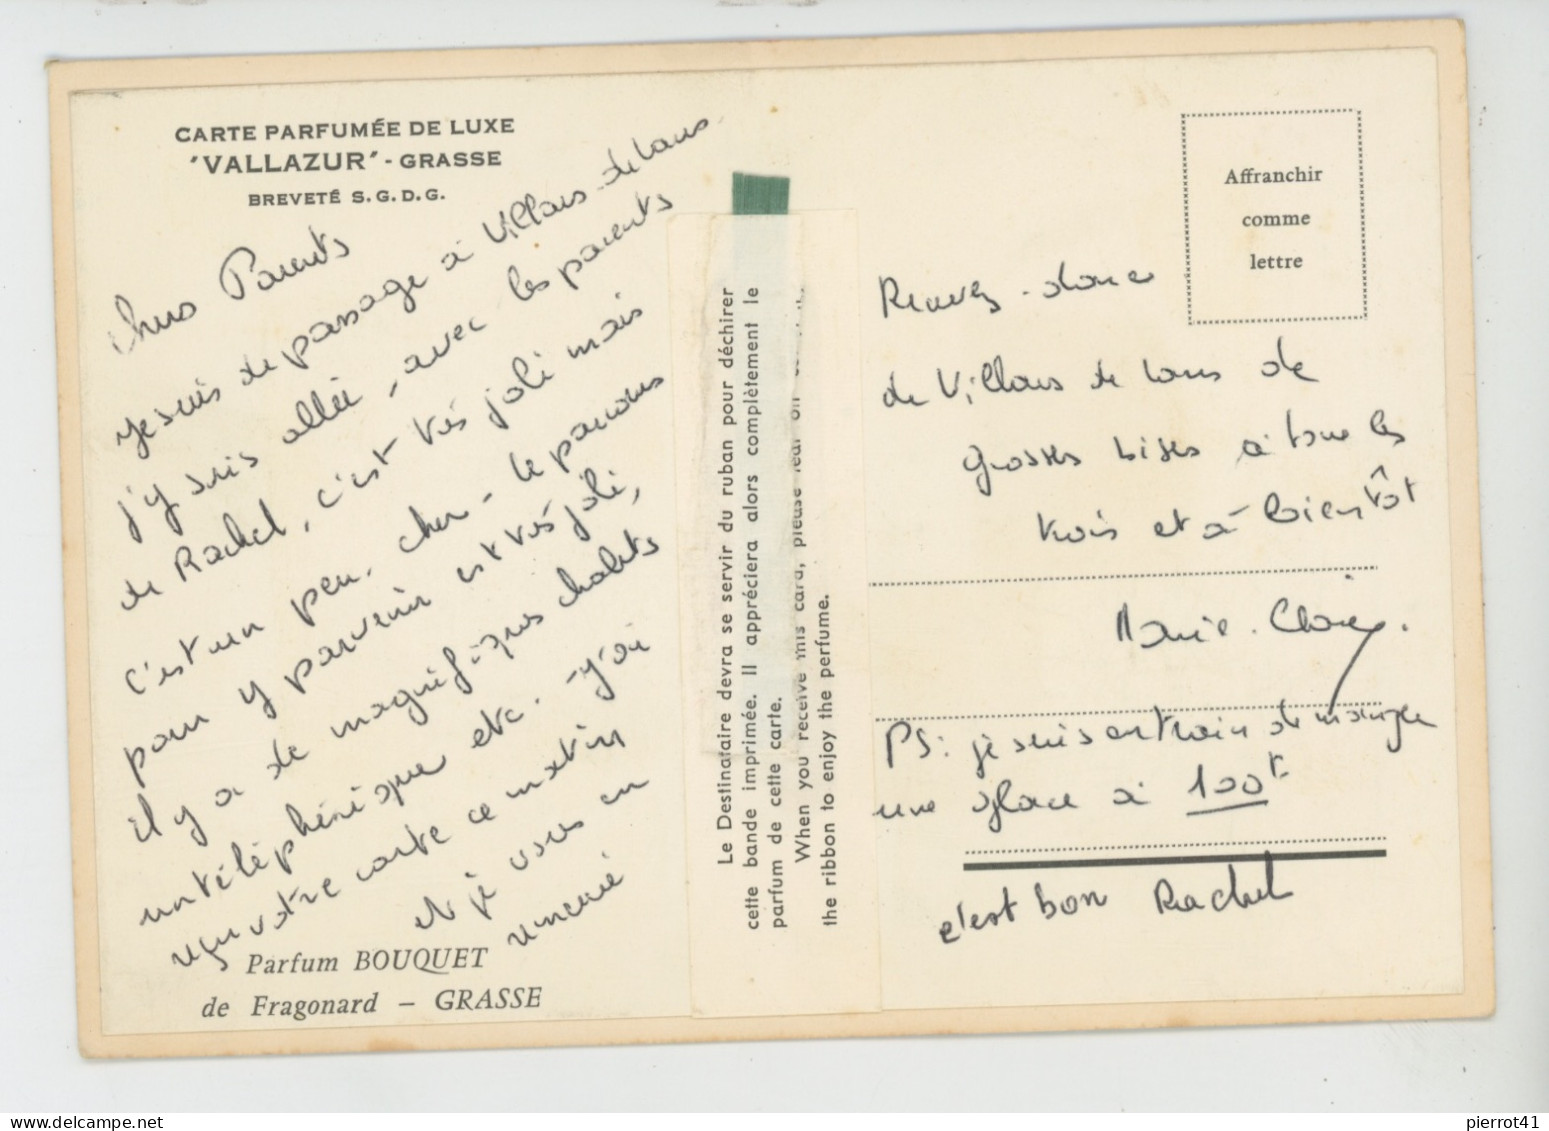 CARTE PARFUMÉE DE LUXE
"VALLAZUR" - GRASSE
BREVETÉ S.G.D.G.
Chers Parents
Je suis de passage à Villars-de-Lans.
j'y suis allée, avec les parents
de Rachel, c'est très joli mais
c'est un peu, cher - le parcours
pour y parvenir est très joli,
il y a de magnifiques chalets
un téléphérique etc. - j'ai
reçu votre carte ce matin
et je vous en
remercie
Parfum BOUQUET
de Fragonard – GRASSE
Le Destinataire devra se servir du ruban pour déchirer
cette bande imprimée. Il appréciera alors complètement le
parfum de cette carte.
When you receive this card, please tear off
the ribbon to enjoy the perfume.
Affranchir
comme
lettre
Recevez-donc
de Villars de Lans de
grosses bises à tous les
trois et à bientôt
Marie.
PS: je suis en train de manger
une glace à 100f
c'est bon Rachel
pierrot41